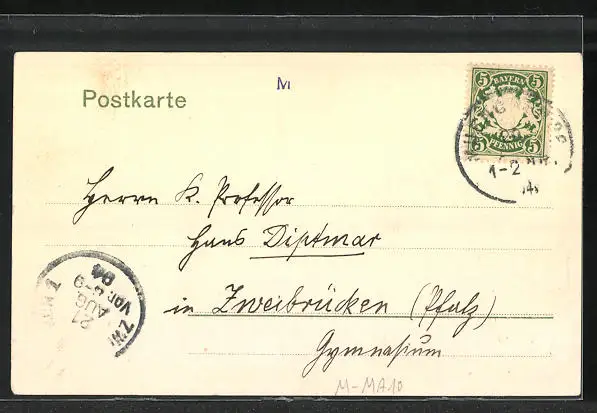 M
Postkarte
5 BAYERN 5
5 PFENNIG 5
1-2
Herrn K. Professor
Hans Diptmar
in Zweibrücken (Pfalz)
Gymnasium
27
AUG
VOR. 8-9
04
M-MA10